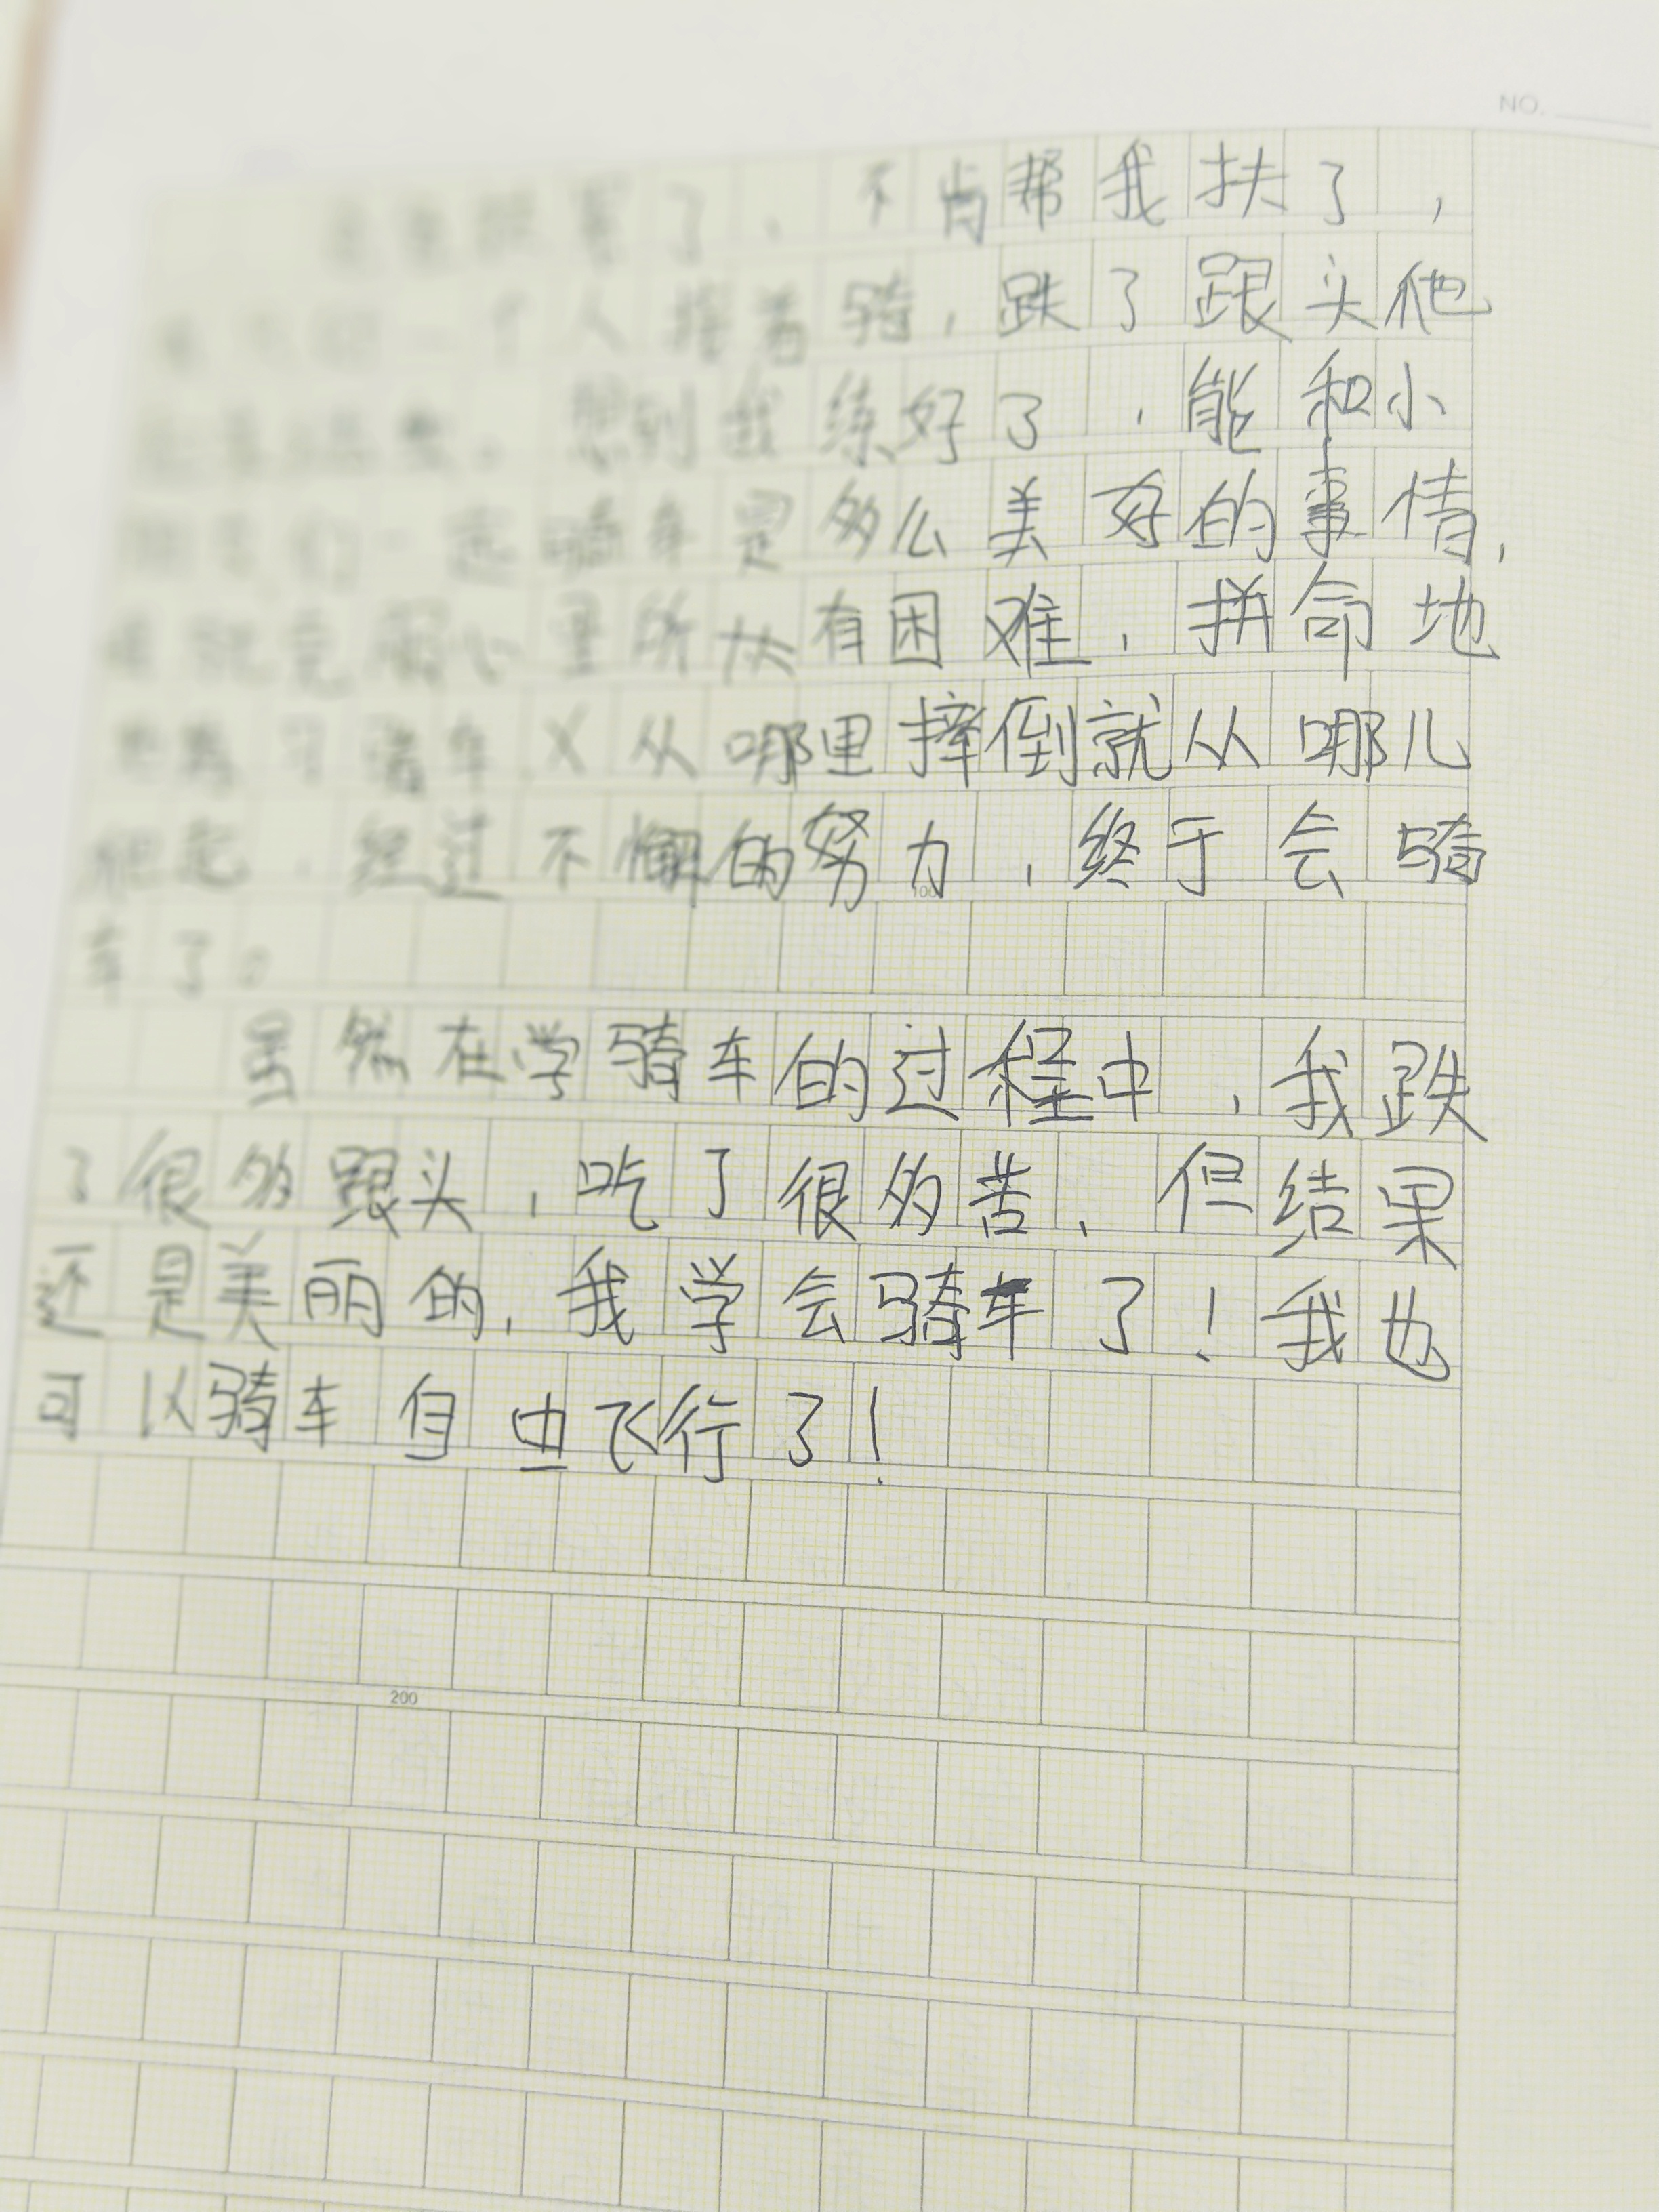 NO.
了，不肯帮我扶了，
一个人接着骑，跌了跟头他
想到我练好了，能和小
们一起骑车是多么美好的事情，
服心里所有困难，拼命地
练习骑车从哪里摔倒就从哪儿
爬起，经过不懈的努力，终于会骑
100
车了。
虽然在学骑车的过程中，我跌
了很多跟头，吃了很多苦，但结果
还是美丽的，我学会骑车了！我也
可以骑车自由飞行了！
200